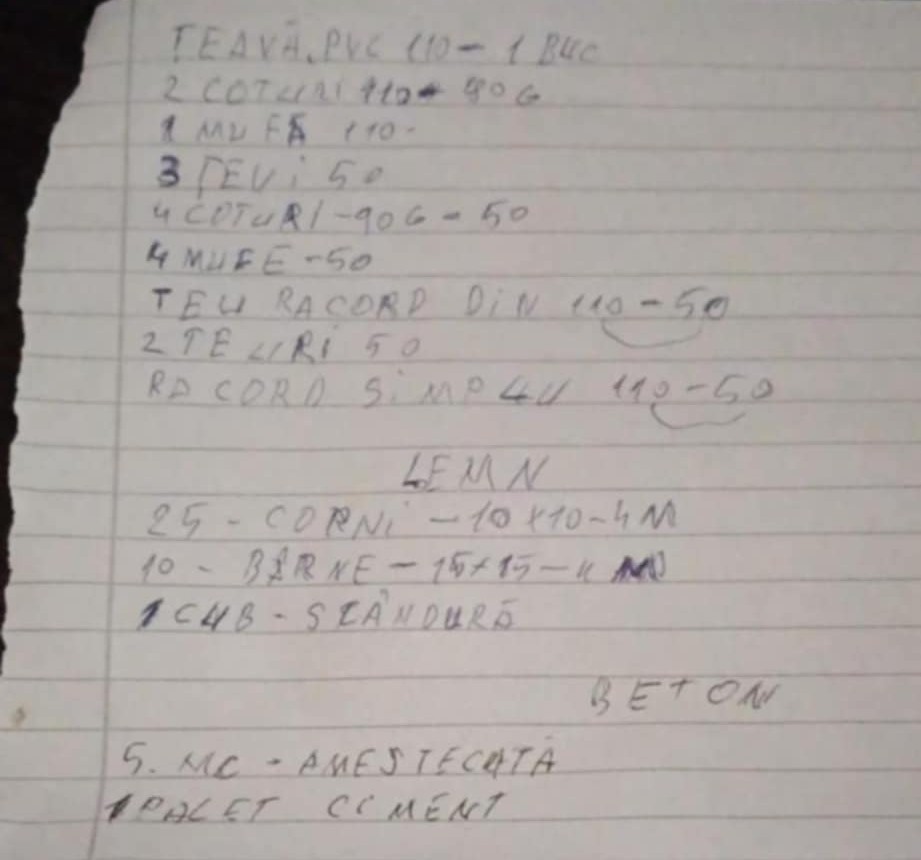 ȚEAVĂ.PVC 110 - 1 BUC
2 COTURI 110 - 90G
1 MUFĂ 110-
3 ȚEVi 50
4 COTURI - 90G - 50
4 MUFE - 50
TEU RACORD DiN 110 - 50
2 TEURi 50
RACORD SiMPLU 110 - 50
LEMN
25 - CORNi - 10x10 - 4M
10 - BÂRNE - 15x15 - 4 M
1 CUB - SCÂNDURĂ
BETON
5. MC - AMESTECATĂ
1 PALET CIMENT